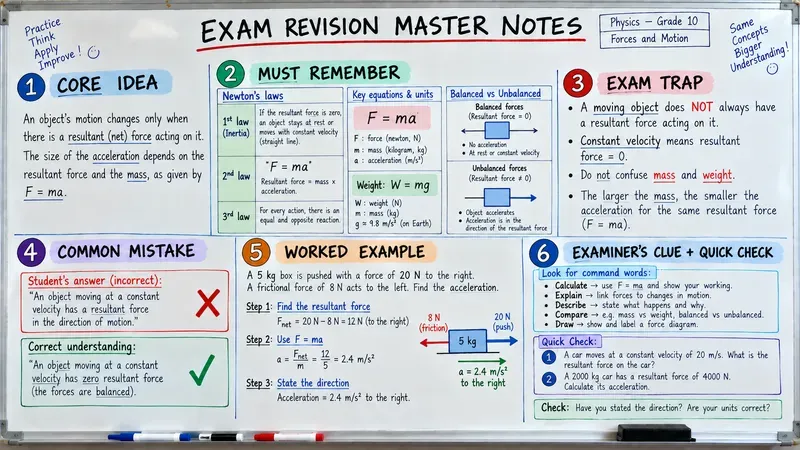 Practice
Think
Apply
Improve !
EXAM REVISION MASTER NOTES
Physics — Grade 10
Forces and Motion
Same
Concepts
Bigger
Understanding !
1 CORE IDEA
An object's motion changes only
when there is a resultant (net) force
acting on it.
The size of the acceleration depends
on the resultant force and the mass,
as given by
F = ma.
2 MUST REMEMBER
Newton's laws
1st law
(Inertia)
If the resultant force is zero,
an object stays at rest or
moves with constant velocity
(straight line).
2nd
law
"F = ma"
Resultant force = mass ×
acceleration.
3rd law
For every action, there is an
equal and opposite reaction.
Key equations & units
F = ma
F : force (newton, N)
m : mass (kilogram, kg)
a : acceleration (m/s²)
Weight: W = mg
W : weight (N)
m : mass (kg)
g = 9.8 m/s² (on Earth)
Balanced vs Unbalanced
Balanced forces
(Resultant force = 0)
• No acceleration
• At rest or constant velocity
Unbalanced forces
(Resultant force ≠ 0)
• Object accelerates
• Acceleration is in the
direction of the resultant force
3 EXAM TRAP
• A moving object does NOT always have
a resultant force acting on it.
• Constant velocity means resultant
force = 0.
• Do not confuse mass and weight.
• The larger the mass, the smaller the
acceleration for the same resultant force
(F = ma).
4 COMMON MISTAKE
Student's answer (incorrect):
"An object moving at a constant
velocity has a resultant force
in the direction of motion."
Correct understanding:
"An object moving at a constant
velocity has zero resultant force
(the forces are balanced).
5 WORKED EXAMPLE
A 5 kg box is pushed with a force of 20 N to the right.
A frictional force of 8 N acts to the left. Find the acceleration.
Step 1: Find the resultant force
Fnet = 20 N – 8 N = 12 N (to the right)
Step 2: Use F = ma
a = Fnet/m = 12/5 = 2.4 m/s²
Step 3: State the direction
Acceleration = 2.4 m/s² to the right.
8 N
(friction)
5 kg
20 N
(push)
a = 2.4 m/s²
to the right
6 EXAMINER'S CLUE + QUICK CHECK
Look for command words:
• Calculate → use F = ma and show your working.
• Explain → link forces to changes in motion.
• Describe → state what happens and why.
• Compare → e.g. mass vs weight, balanced vs unbalanced.
• Draw → show and label a force diagram.
Quick Check:
1 A car moves at a constant velocity of 20 m/s. What is the
resultant force on the car?
2 A 2000 kg car has a resultant force of 4000 N.
Calculate its acceleration.
Check: Have you stated the direction? Are your units correct?